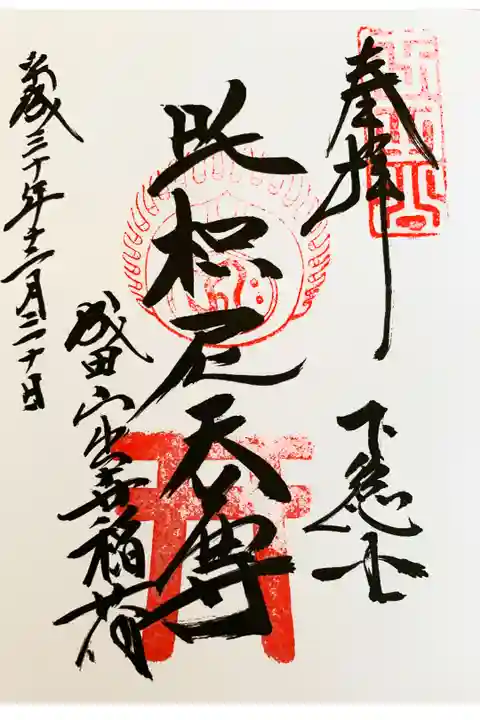 奉拝
下総国
吒枳尼天尊
成田山出世稲荷
平成三十年十二月二十日